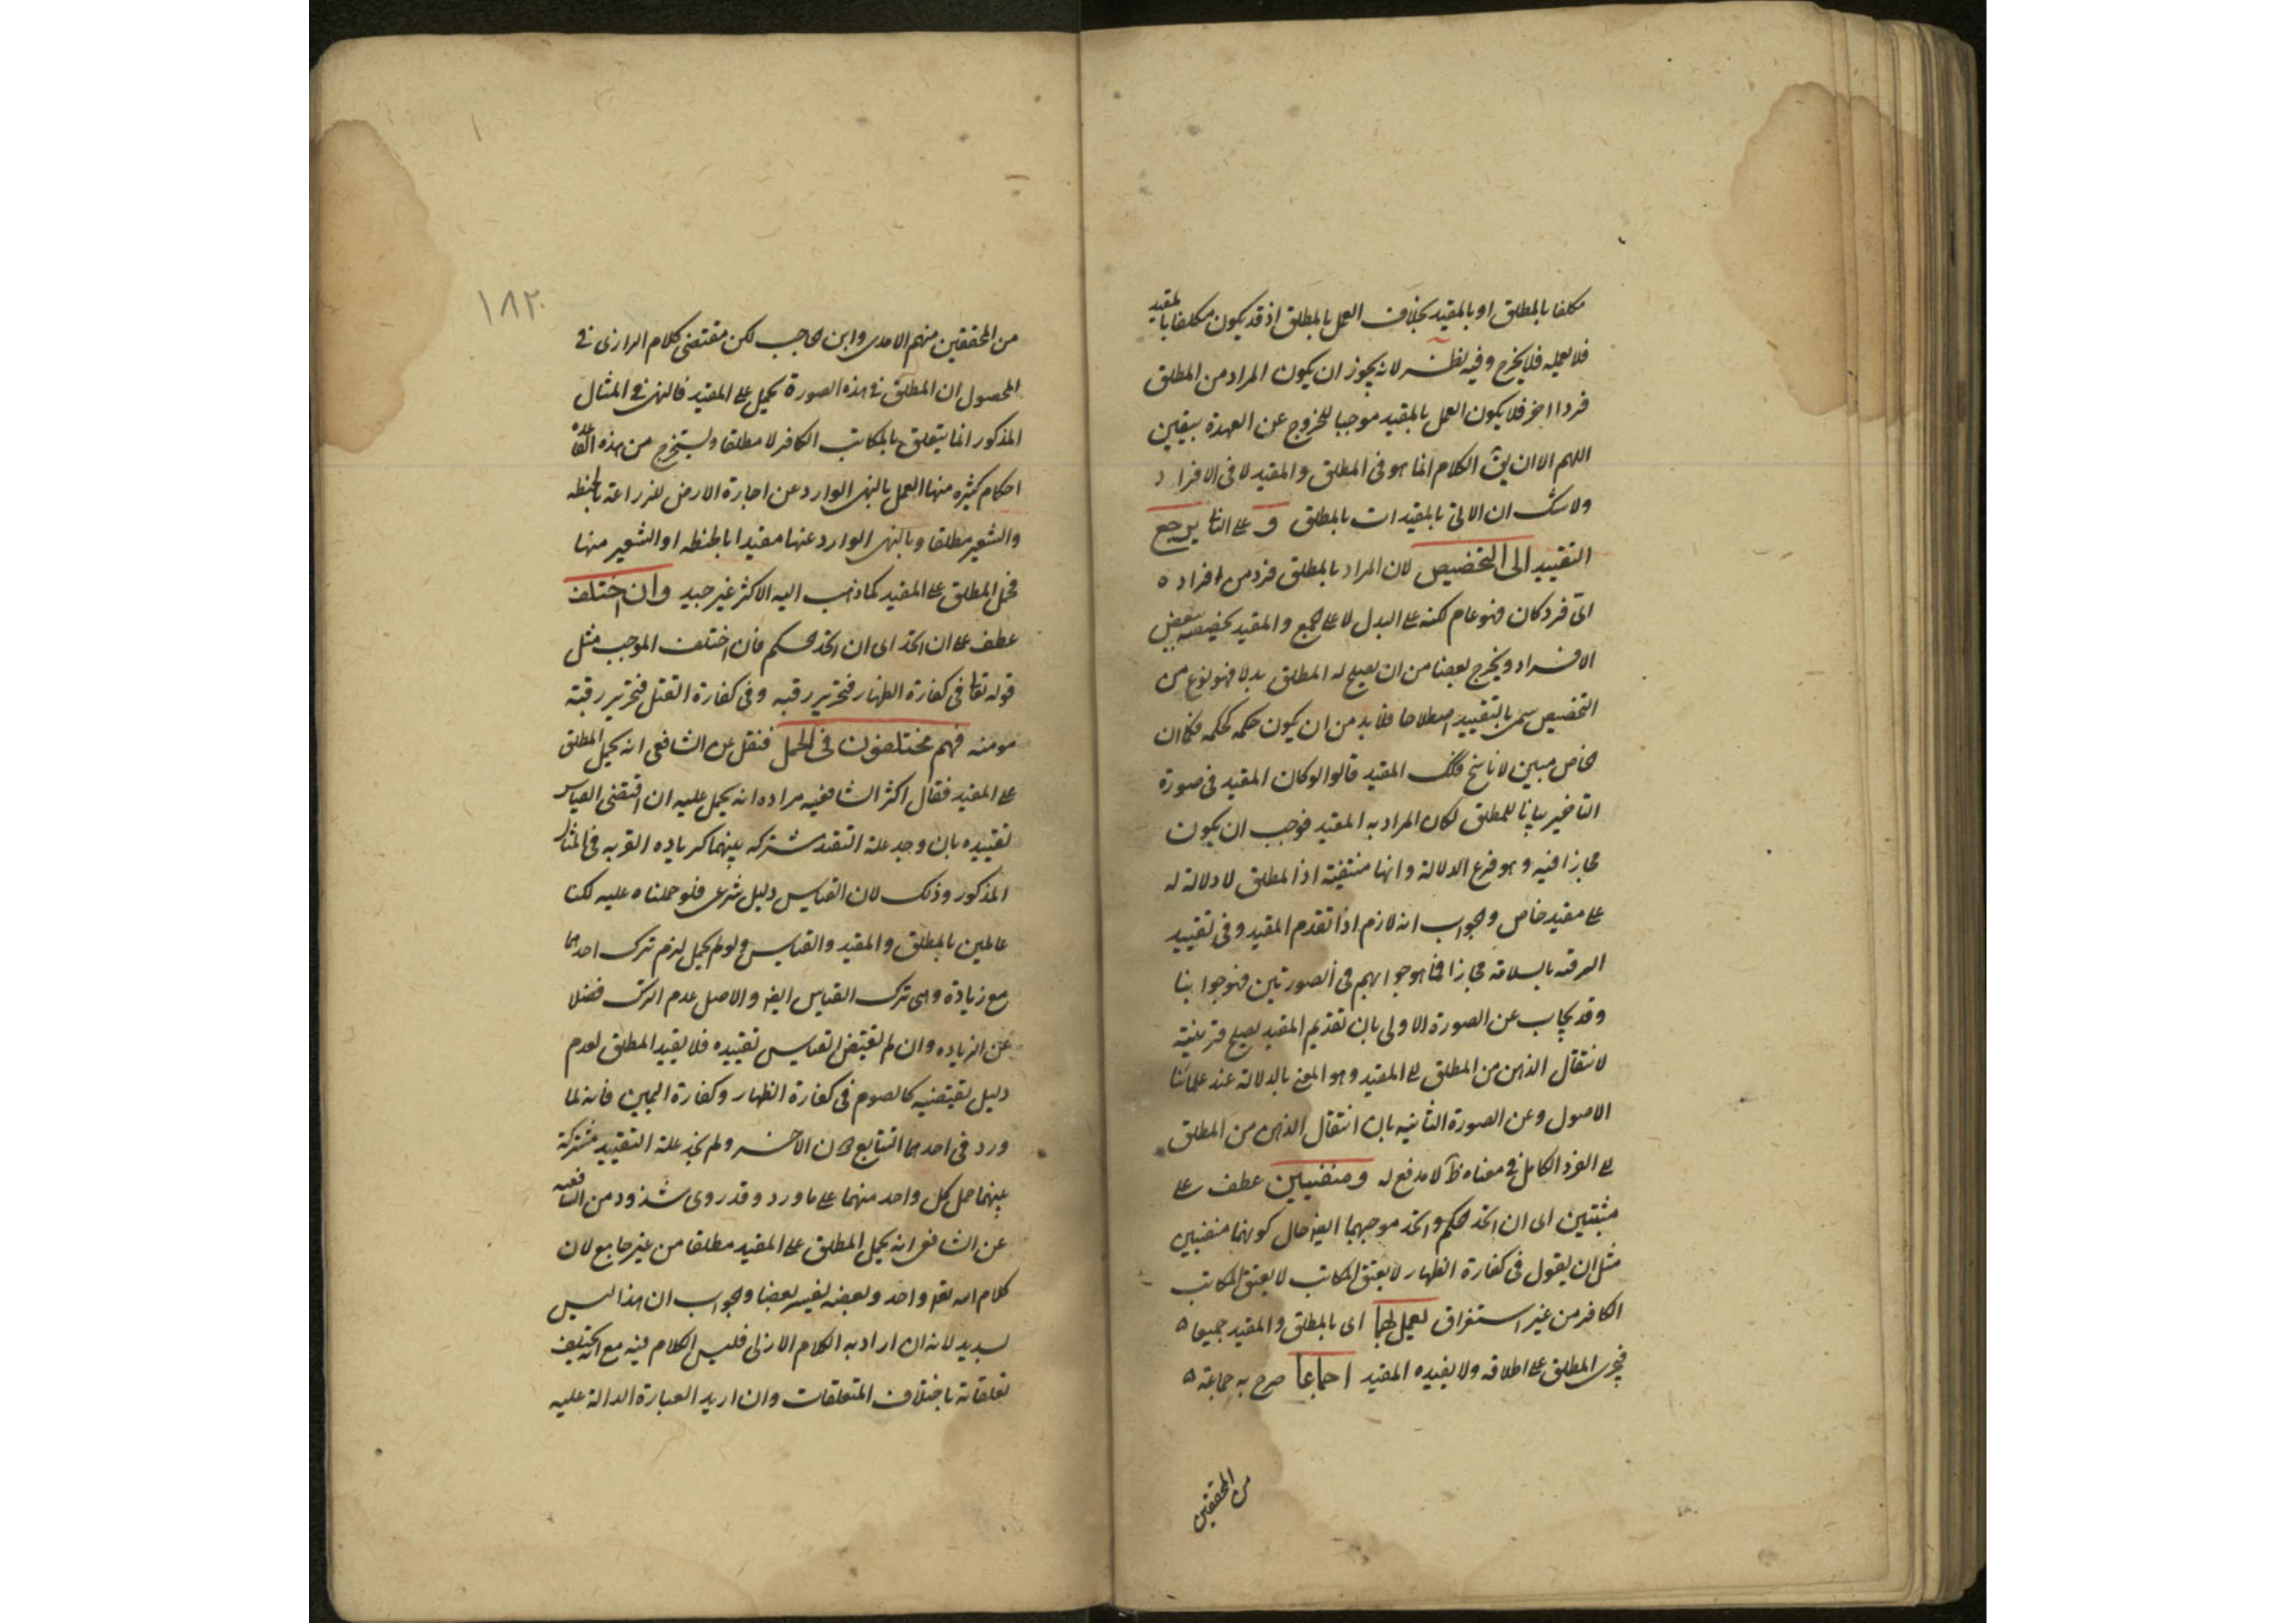 مكلفا بالمطلق او بالمقيد بخلاف العمل بالمطلق اذ قد يكون مكلفا بالمقيد
فلا يعمله فلا يخرج وفيه نظر لانه يجوز ان يكون المراد من المطلق
فردا اخر فلا يكون العمل بالمقيد موجبا للخروج عن العهدة بيقين
اللهم الا ان يق الكلام انما هو فى المطلق والمقيد لا فى الافراد
ولا شك ان الاتى بالمقيد ات بالمطلق و على الثانى يرجع
التقييد الى التخصيص لان المراد بالمطلق فرد من افراده
اىّ فرد كان فهو عام لكنه على البدل لا على الجمع والمقيد يخصصه ببعض
الافراد ويخرج بعضا من ان يصلح له المطلق بدلا فهو نوع من
التخصيص سمى بالتقييد اصطلاحا فلابد من ان يكون حكمه كحكمه فكما ان
الخاص مبين لا ناسخ فكذلك المقيد قالوا لو كان المقيد فى صورة
التاخير بيانا للمطلق لكان المراد به المقيد فوجب ان يكون
مجازا فيه وهو فرع الدلالة وانها منتفية اذ المطلق لا دلالة له
على مقيد خاص والجواب انه لازم اذا تقدم المقيد وفى تقييد
الرقبه بالسلامة مجازا فما هو جوابهم فى الصورتين فهو جوابنا
وقد يجاب عن الصورة الاولى بان تقديم المقيد يصلح قرينة
لانتقال الذهن من المطلق الى المقيد وهو المعنى بالدلالة عند علمائنا
الاصول وعن الصورة الثانيه بان انتقال الذهن من المطلق
الى الفرد الكامل فى معناه ظ لا مدفع له ومنفيين عطف على
مثبتين اى ان اتحد الحكم واتحد موجبهما ايضا حال كونهما منفيين
مثل ان يقول فى كفارة الظهار لا يعتق المكاتب لا يعتق المكاتب
الكافر من غير استغراق يعمل بهما اى بالمطلق والمقيد جميعا
فيجرى المطلق على اطلاقه ولا يقيده المقيد اجماعا صرح به جماعة
من المحققين
١٨٢
من المحققين منهم الامدى وابن الحاجب لكن مقتضى كلام الرازى فى
المحصول ان المطلق فى هذه الصورة يحمل على المقيد فالنهى فى المثال
المذكور انما يتعلق بالمكاتب الكافر لا مطلقا ويستخرج من هذه القاعدة
احكام كثيره منها العمل بالنهى الوارد عن اجارة الارض للزراعة بالحنطه
والشعير مطلقا وبالنهى الوارد عنها مقيدا بالحنطه او الشعير منها
فحمل المطلق على المقيد كما ذهب اليه الاكثر غير جيد وان اختلف
عطف على ان اتحد اى ان اتحد الحكم فان اختلف الموجب مثل
قوله تعالى فى كفارة الظهار فتحرير رقبه وفى كفارة القتل فتحرير رقبة
مومنه فهم مختلفون فى الحمل فنقل عن الشافعى انه يحمل المطلق
على المقيد فقال اكثر الشافعيه مراده انه يحمل عليه ان اقتضى القياس
تقييده بان وجد علة التقيد مشتركه بينهما كزياده القربه فى المثال
المذكور وذلك لان القياس دليل شرعى فلو حملناه عليه لكنا
عاملين بالمطلق والمقيد والقياس ولو لم يحمل لزم ترك احدهما
مع زيادة وهى ترك القياس ايضا والاصل عدم الترك فضلا
عن الزياده وان لم تقتض القياس تقييده فلا يقيد المطلق لعدم
دليل يقتضيه كالصوم فى كفارة الظهار وكفارة اليمين فانه لما
ورد فى احدهما التتابع دون الاخر ولم نجد علة التقييد مشتركة
بينهما حمل كل واحد منهما على ما ورد وقد روى شذوذ من الشافعيه
عن الشافعى انه يحمل المطلق على المقيد مطلقا من غير جامع لان
كلام الله تعالى واحد وبعضه يفسر بعضا والجواب ان هذا ليس
بسديد لانه ان اراد به الكلام الازلى فليس الكلام فيه مع انه يختلف
تعلقاته باختلاف المتعلقات وان اريد العبارة الدالة عليه